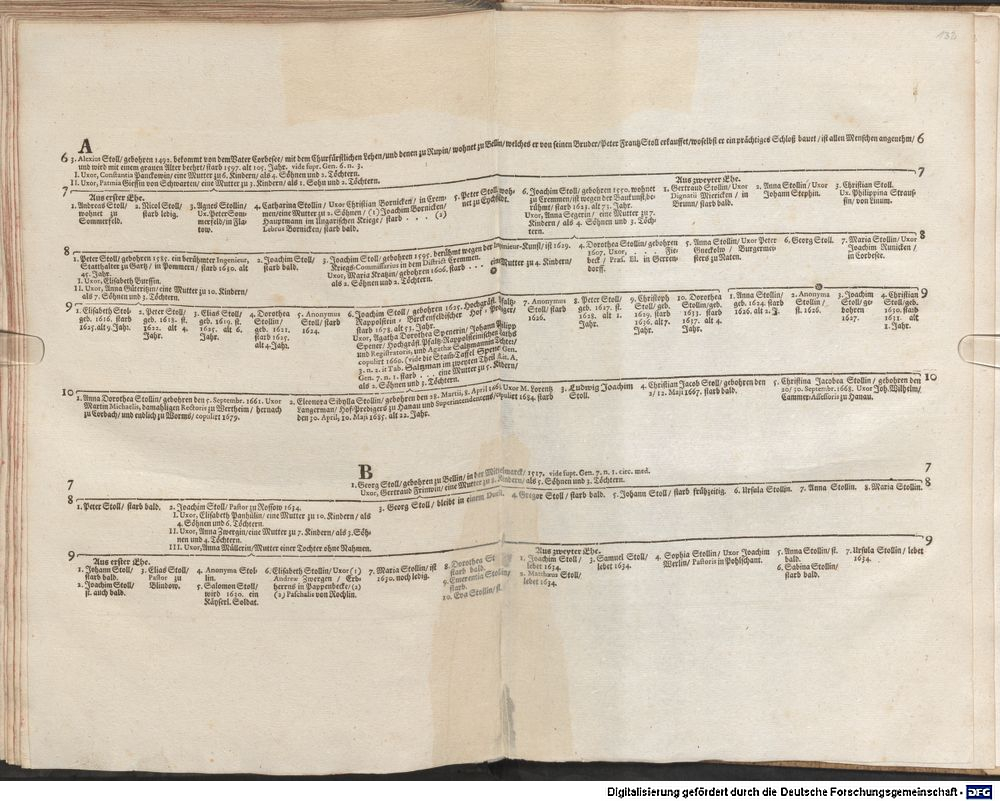 132
A
6 3. Alexius Stoll/ gebohren 1492. bekommt von dem Vater Corbesee/ mit dem Churfürstlichen Lehen/ und denen zu Rupin/ wohnet zu Bellin/ welches er von seinen Bruder/ Peter Frantz Stoll erkauffet/ woselbst er ein prächtiges Schloß bauet/ ist allen Menschen angenehm/ 6
und wird mit einem grauen Alter beehrt/ starb 1597. alt 105. Jahr. vide supr. Gen. 6. n. 3.
I. Uxor, Constantia Panckowin/ eine Mutter zu 6. Kindern/ als 4. Söhnen und 2. Töchtern.
II. Uxor, Patmia Giessin von Schwarten/ eine Mutter zu 3. Kindern/ als 1. Sohn und 2. Töchtern.
7 Aus erster Ehe. Aus zweyter Ehe. 7
1. Andreas Stoll/
wohnet zu
Sommerfeld.
2. Nicol Stoll/
starb ledig.
3. Agnes Stollin/
Ux. Peter Som-
merfeld/ in Fla-
tow.
4. Catharina Stollin/ Uxor Christian Bornicken/ in Crem-
men/ eine Mutter zu 2. Söhnen/ (1) Joachim Bornicken/
Hauptmann im Ungarischen Kriege/ starb . . . . (2)
Lebrus Bornicken/ starb bald.
5. Peter Stoll/ woh-
net zu Eychstedt.
6. Joachim Stoll/ gebohren 1550. wohnet
zu Cremmen/ ist wegen der Baukunst be-
rühmt/ starb 1623. alt 73. Jahr.
Uxor, Anna Segerin/ eine Mutter zu 7.
Kindern/ als 4. Söhnen und 3. Töch-
tern.
1. Gertraud Stollin/ Uxor
Dignatii Miericken/ in
Brunn/ starb bald.
2. Anna Stollin/ Uxor
Johann Stephin.
3. Christian Stoll.
Ux. Philippina Strauß-
sin/ von Linum.
8 8
1. Peter Stoll/ gebohren 1585. ein berühmter Ingenieur,
Statthalter zu Gartz/ in Pommern/ starb 1630. alt
45. Jahr.
I. Uxor, Elisabeth Burssin.
II. Uxor, Anna Güleritzin/ eine Mutter zu 10. Kindern/
als 7. Söhnen und 3. Töchtern.
2. Joachim Stoll/
starb bald.
3. Joachim Stoll/ gebohren 1595. berühmt wegen der Ingenieur-Kunst/ ist 1629.
Kriegs-Commissarius in dem District Cremmen.
Uxor, Maria Kratzin/ gebohren 1606. starb . . . . eine Mutter zu 4. Kindern/
als 2. Söhnen und 2. Töchtern.
4. Dorothea Stollin/ gebohren
1607. Uxor, . . . Fie-
beck/ Præf. El. in Gerren-
dorff.
5. Anna Stollin/ Uxor Peter
Gnekolw/ Burgermei-
sters zu Naten.
6. Georg Stoll.
7. Maria Stollin/ Uxor
Joachim Runicken/
in Corbesee.
9 9
1. Elisabeth Stol-
lin/ geb. 1616. starb
1625. alt 9. Jahr.
2. Peter Stoll/
geb. 1618. st.
1622. alt 4.
Jahr.
3. Elias Stoll/
geb. 1619. st.
1625. alt 6.
Jahr.
4. Dorothea
Stollin/
geb. 1621.
starb 1625.
alt 4. Jahr.
5. Anonymus
Stoll/ starb
1624.
6. Joachim Stoll/ gebohren 1625. Hochgräfl. Pfaltz-
Rappolstein- Birckenfeldischer Hof-Prediger/
starb 1678. alt 53. Jahr.
Uxor, Agatha Dorothea Spenerin/ Johann Philipp
Spener/ Hochgräfl. Pfaltz-Rappolsteinischen Raths
und Registratoris, und Agathæ Saltzmannin Tochter/
copulirt 1660. (vide die Stam̃-Taffel Spener Gen.
3. n. 2. it Tab. Saltzman im zweyten Theil Lit. A.
Gen. 7. n. 1. starb . . . . eine Mutter zu 5. Kindern/
als 2. Söhnen und 3. Töchtern.
7. Anonymus
Stoll/ starb
1626.
8. Peter Stoll/
geb. 1627. st.
1628. alt 1.
Jahr.
9. Christoph
Stoll/ geb.
1629. starb
1636. alt 7.
Jahr.
10. Dorothea
Stollin/ geb.
1633. starb
1637. alt 4.
Jahr.
1. Anna Stollin/
geb. 1624. starb
1626. alt 2. J.
2. Anonyma
Stollin/
st. 1626.
3. Joachim
Stoll/ ge-
bohren
1627.
4. Christian
Stoll/ geb.
1630. starb
1631. alt
1. Jahr.
10 10
1. Anna Dorothea Stollin/ gebohren den 5. Septembr. 1661. Uxor
Martin Michaelis, damahligen Rectoris zu Wertheim/ hernach
zu Corbach/ und endlich zu Worms/ copulirt 1679.
2. Eleonora Sibylla Stollin/ gebohren den 28. Martii, 8. April 1663. Uxor M. Lorentz
Langerman/ Hof-Predigers zu Hanau und Superintendentens/ copulirt 1684. starb
den 30. April, 10. Maji 1685. alt 22. Jahr.
3. Ludwig Joachim
Stoll.
4. Christian Jacob Stoll/ gebohren den
2/ 12. Maji 1667. starb bald.
5. Christina Jacobea Stollin/ gebohren den
20/ 30. Septembr. 1668. Uxor Joh. Wilhelm/
Cammer-Assessoris zu Hanau.
B
7 1. Georg Stoll/ gebohren zu Bellin/ in der Mittelmarck/ 1517. vide supr. Gen. 7. n. 1. circ. med. 7
Uxor, Gertraud Frinwin/ eine Mutter zu 8. Kindern/ als 5. Söhnen und 3. Töchtern.
8 8
1. Peter Stoll/ starb bald.
2. Joachim Stoll/ Pastor zu Rossow 1634.
I. Uxor, Elisabeth Panhülin/ eine Mutter zu 10. Kindern/ als
4. Söhnen und 6. Töchtern.
II. Uxor, Anna Zwergin/ eine Mutter zu 7. Kindern/ als 3. Söh-
nen und 4. Töchtern.
III. Uxor, Anna Müllerin/ Mutter einer Tochter ohne Nahmen.
3. Georg Stoll/ bleibt in einem Duell.
4. Gregor Stoll/ starb bald.
5. Johann Stoll/ starb frühzeitig.
6. Ursula Stollin.
7. Anna Stollin.
8. Maria Stollin.
9 Aus erster Ehe. Aus zweyter Ehe. 9
1. Johann Stoll/
starb bald.
2. Joachim Stoll/
st. auch bald.
3. Elias Stoll/
Pastor zu
Blindow.
4. Anonyma Stol-
lin.
5. Salomon Stoll/
wird 1630. ein
Käyserl. Soldat.
6. Elisabeth Stollin/ Uxor (1)
Andreæ Zwergen/ Erb-
herrens in Pappenbecke/ (2)
(2) Paschalis von Rochlin.
7. Maria Stollin/ ist
1630. noch ledig.
8. Dorothea St
starb bald.
9. Emerentia Stollin/
starb.
10. Eva Stollin/ st.
1. Joachim Stoll/
lebet 1634.
2. Matthæus Stoll/
lebet 1634.
3. Samuel Stoll/
lebet 1634.
4. Sophia Stollin/ Uxor Joachim
Werlin/ Pastoris in Pohlschant.
5. Anna Stollin/ st.
bald.
6. Sabina Stollin/
starb bald.
7. Ursula Stollin/ lebet
1634.
Digitalisierung gefördert durch die Deutsche Forschungsgemeinschaft - DFG